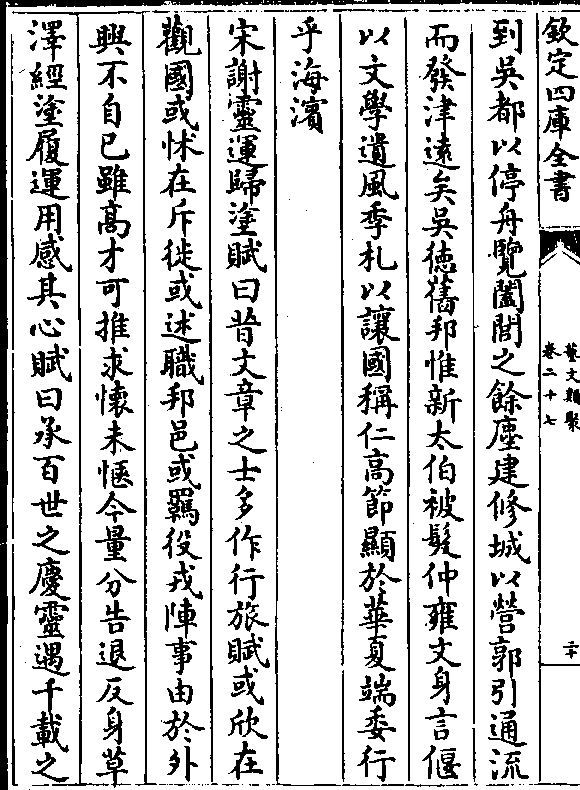 欽定四庫全書
藝文類聚
卷二十七
二十
到吳都以停舟覽闔閭之餘塵建修城以營郭引通流
而發津遠矣吳徳舊邦惟新太伯被髮仲雍文身言偃
以文學遺風季札以讓國稱仁高節顯於華夏端委行
乎海濱
宋謝靈運歸塗賦曰昔文章之士多作行旅賦或欣在
觀國或怵在斥徙或述職邦邑或羈役戎陣事由於外
興不自已雖高才可推求懷未愜今量分告退反身草
澤經塗履運用感其心賦曰承百世之慶靈遇千載之